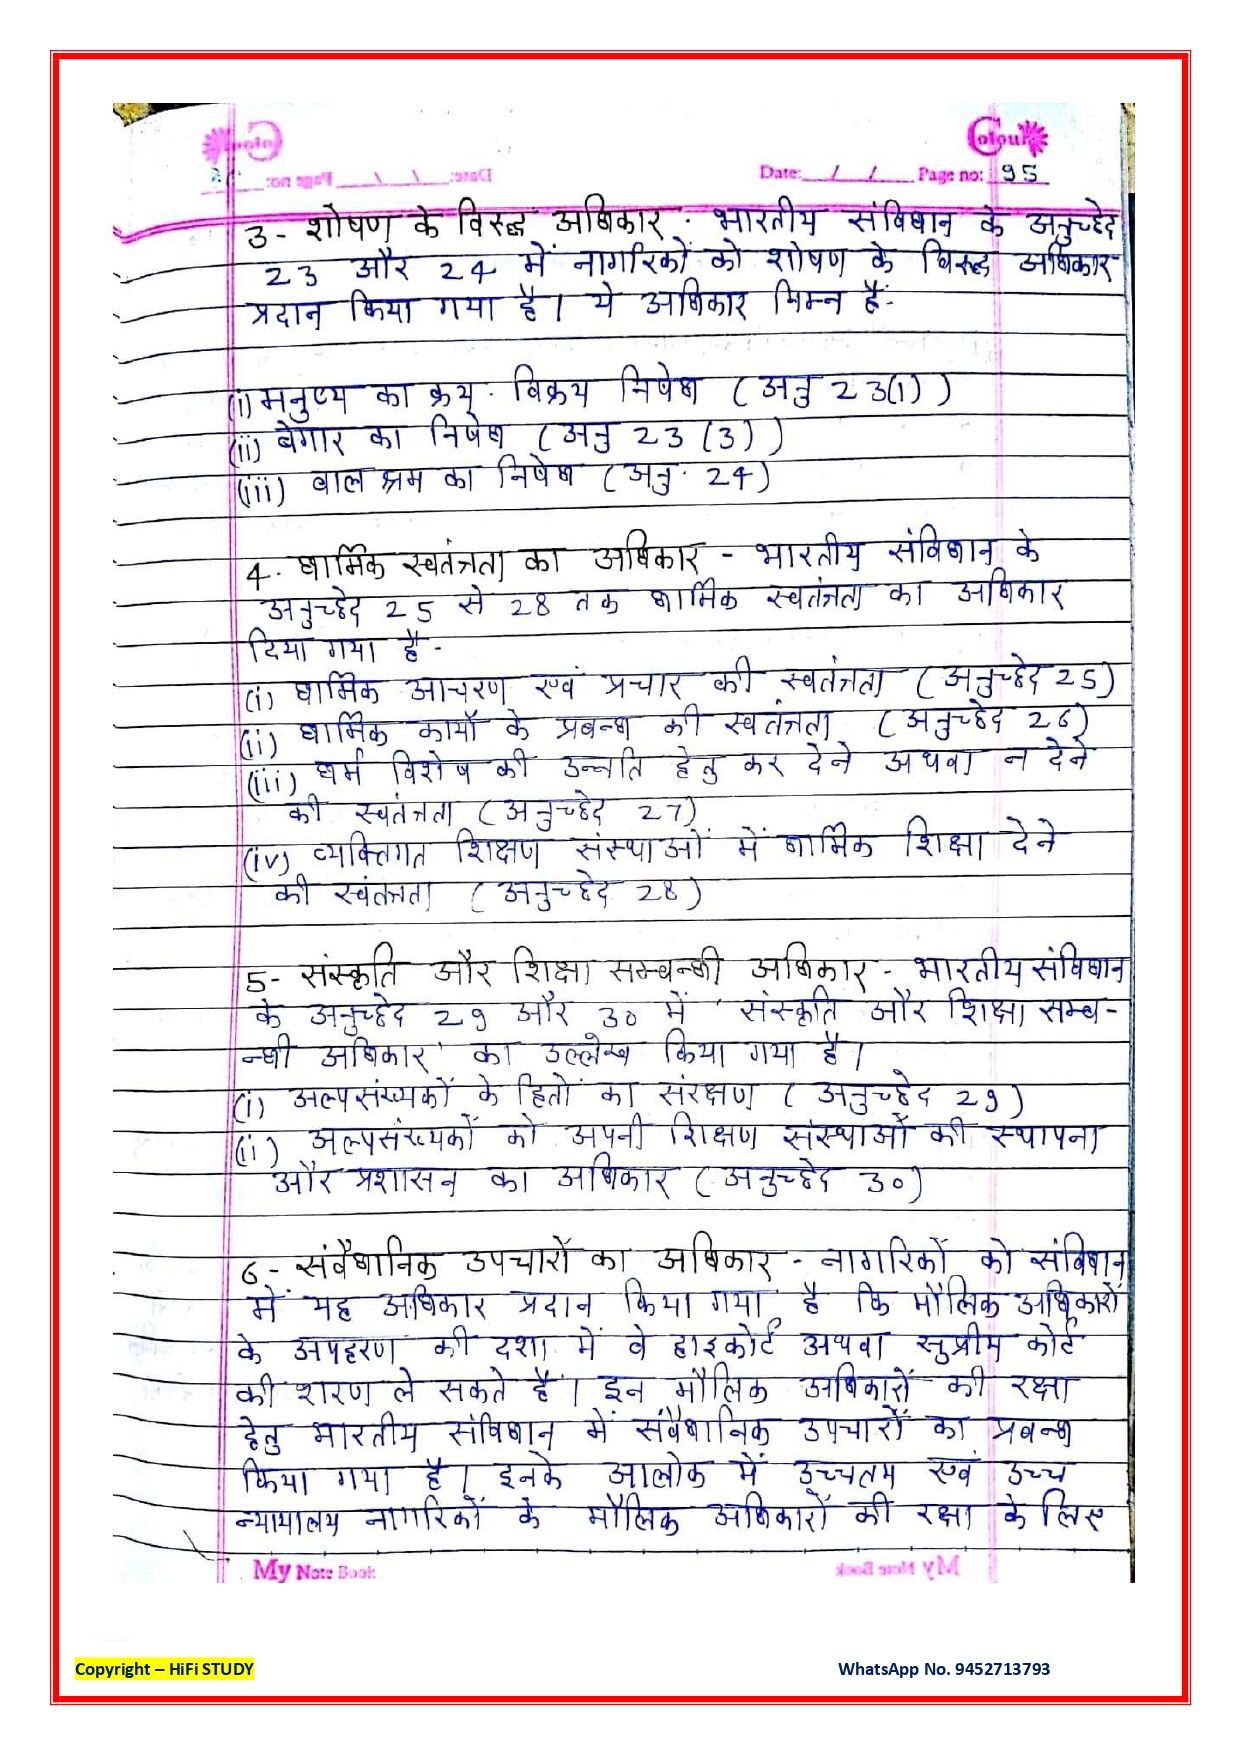 Colour
Date: / / Page no: 95
3- शोषण के विरुद्ध अधिकार - भारतीय संविधान के अनुच्छेद
23 और 24 में नागरिकों को शोषण के विरुद्ध अधिकार
प्रदान किया गया है। ये अधिकार निम्न हैं-
(i) मनुष्य का क्रय-विक्रय निषेध (अनु 23(1))
(ii) बेगार का निषेध (अनु 23 (3))
(iii) बाल श्रम का निषेध (अनु. 24)
4- धार्मिक स्वतंत्रता का अधिकार - भारतीय संविधान के
अनुच्छेद 25 से 28 तक धार्मिक स्वतंत्रता का अधिकार
दिया गया है -
(i) धार्मिक आचरण एवं प्रचार की स्वतंत्रता (अनुच्छेद 25)
(ii) धार्मिक कार्यों के प्रबन्ध की स्वतंत्रता (अनुच्छेद 26)
(iii) धर्म विशेष की उन्नति हेतु कर देने अथवा न देने
की स्वतंत्रता (अनुच्छेद 27)
(iv) व्यक्तिगत शिक्षण संस्थाओं में धार्मिक शिक्षा देने
की स्वंतत्रता (अनुच्छेद 28)
5- संस्कृति और शिक्षा सम्बन्धी अधिकार - भारतीय संविधान
के अनुच्छेद 29 और 30 में 'संस्कृति और शिक्षा सम्ब-
न्धी अधिकार' का उल्लेख किया गया है।
(i) अल्पसंख्यकों के हितों का संरक्षण (अनुच्छेद 29)
(ii) अल्पसंख्यकों को अपनी शिक्षण संस्थाओं की स्थापना
और प्रशासन का अधिकार (अनुच्छेद 30)
6- संवैधानिक उपचारों का अधिकार - नागरिकों को संविधान
में यह अधिकार प्रदान किया गया है कि मौलिक अधिकारों
के अपहरण की दशा में वे हाइकोर्ट अथवा सुप्रीम कोर्ट
की शरण ले सकते हैं। इन मौलिक अधिकारों की रक्षा
हेतु भारतीय संविधान में संवैधानिक उपचारों का प्रबन्ध
किया गया है। इनके आलोक में उच्चतम एवं उच्च
न्यायालय नागरिकों के मौलिक अधिकारों की रक्षा के लिए
My Note Book
Copyright – HiFi STUDY
WhatsApp No. 9452713793